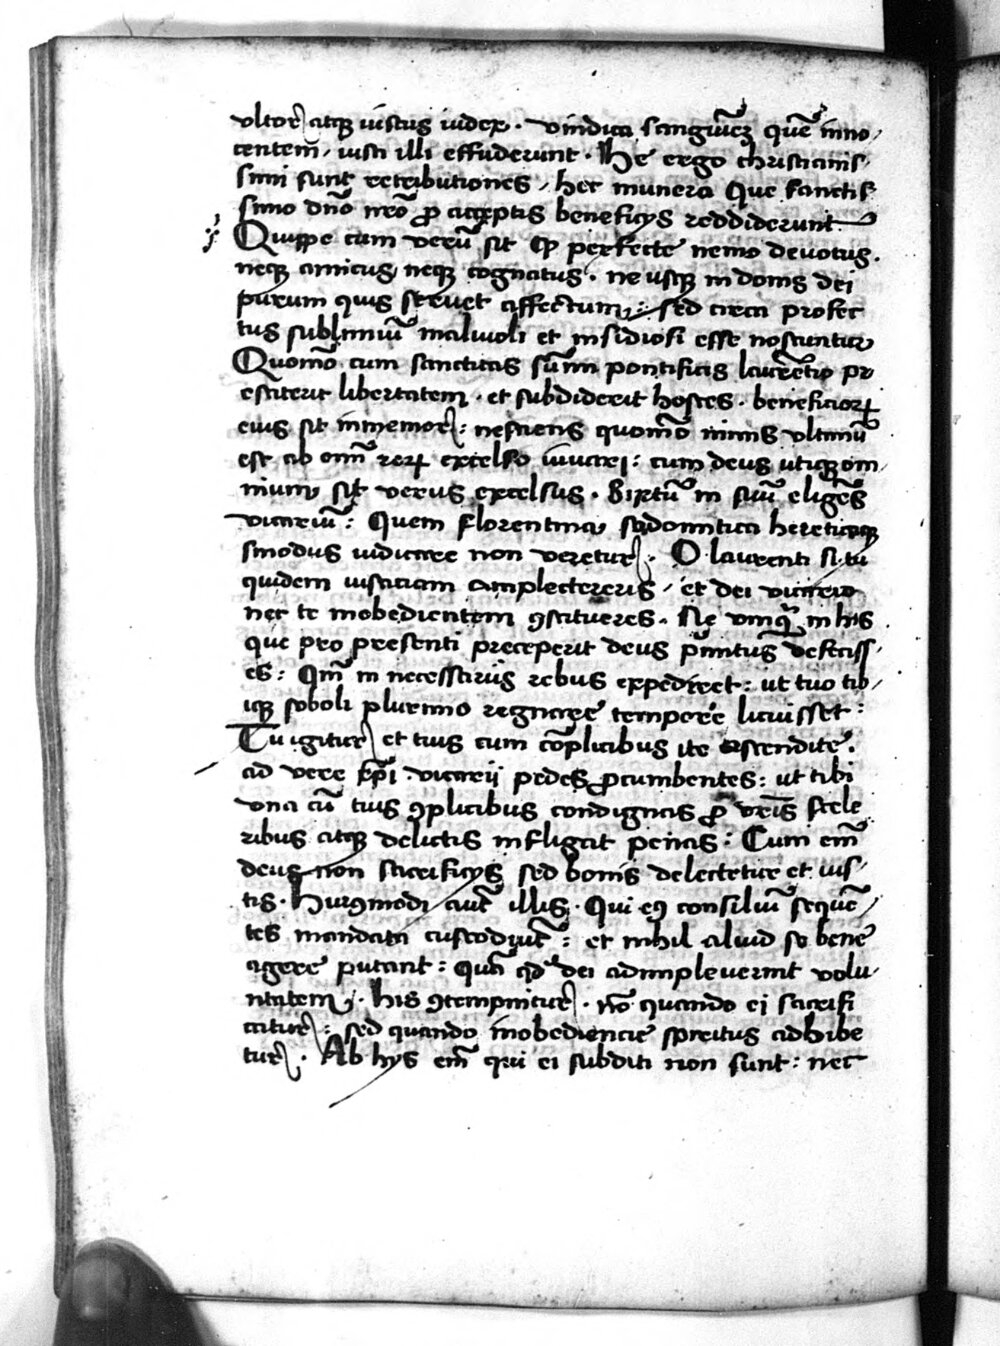 vltor atqꝫ iustus iudex · vindica sanguinēꝫ quē inno⸗
centem / iusti illi effuderunt · He ergo christianis⸗
simi sunt retributiones / hec munera Que sanctis⸗
simo dn̄o nr̄o ꝓ acceptis beneficijs reddiderunt
Quippe cum verū sit ꝙ perfecte nemo deuotus ·
neqꝫ amicus neqꝫ cognatus · ne usqꝫ in domo dei
purum quis seruet affectum : sed circa profec
tus sublimiū maliuoli et insidiosi esse noscuntur
Quomō cum sanctitas sūmi pontificis laurētio pr
estiterit libertatem · et subdiderit hostes · beneficioꝝ
eius sit inmemor : nesciens quomō nimis vltimū
est ab om̄i reꝝ excelso iuuari : cum deus utiqꝫ om
nium sit verus excelsus · Sixtū in suū eligēs
vicariū : Quem florentina sodomitica hereticaqꝫ
sinodus iudicare non veretur · O laurenti si tu
quidem iusticiam amplectereris / et dei vicario
nec te inobedientem ꝯstitueres · Ne vmqꝫ in his
que pro presenti preceperit deus pēnitus defeciss⸗
es : Qm̄ in necessariis rebus expediret : ut tuo tib⸗
iqꝫ soboli plurimo regnare tempore licuisset :
Tu igitur et tuis cum cōplicibus ite ascendite ·
ad vere xp̄i vicarij pedes ꝓcumbentes : ut tibi
vna cū tuis ꝯplicibus condignas ꝓ vr̄is scele
ribus atqꝫ delictis infligat penas : Cum em̄
deus non sacrificijs sed bonis delectetur et ius⸗
tis · Huiꝯmodi aūt illis · Qui eiꝯ consiliū sequē⸗
tes mandata custodiūt : et nihil aliud se bene
agere putant : quā qd̄ dei adimpleuerint volu⸗
ntatem · his ꝯtempnitur · nō quando ei sacrifi
catur : sed quando inobediencie spiritus adhibe
tur · Ab hijs em̄ qui ei subditi non sunt : nec